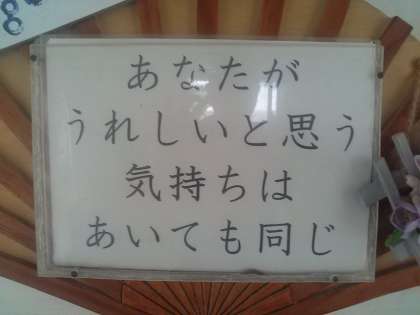 あなたが
うれしいと思う
気持ちは
あいても同じ